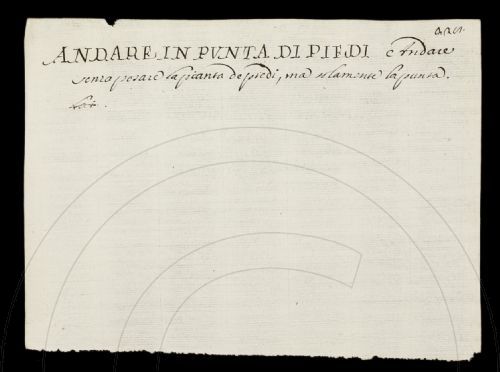 ANDARE, IN PVNTA DI PIEDI è Andare
senza posare la pianta de piedi, ma solamente la punta.